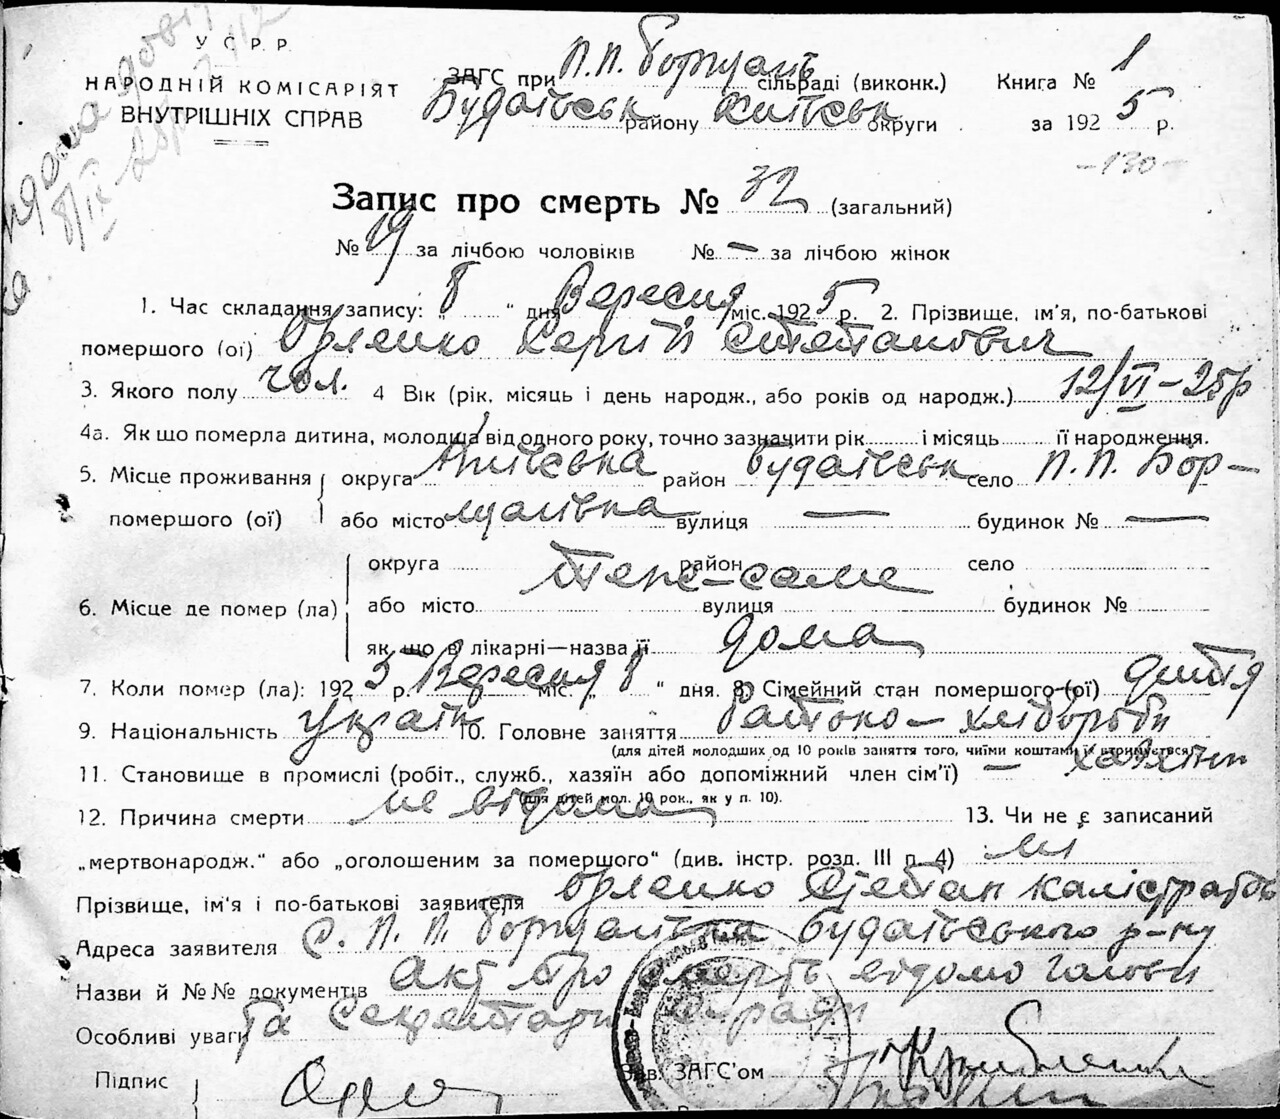 У С Р Р.
НАРОДНІЙ КОМІСАРІЯТ
ВНУТРІШНІХ СПРАВ
ЗАГС при П.П. Борщаг. сільраді (виконк.) Книга № 1
Будаївськ району Київськ округи за 1925 р.
-130-
Запис про смерть № 32 (загальний)
№ 19 за лічбою чоловіків № — за лічбою жінок
1. Час складання запису: „8“ дня Вересня міс. 1925 р. 2. Прізвище, ім'я, по-батькові
помершого (ої) Орленко Сергій Степанович
3. Якого полу чол. 4 Вік (рік, місяць і день народж., або років од народж.) 12/VI–25р
4а. Як що померла дитина, молодша від одного року, точно зазначити рік і місяць її народження.
5. Місце проживання округа Київська район Будаївськ село П.П. Бор–
помершого (ої) або місто щагівка вулиця — будинок № —
округа район село
Теж-саме
6. Місце де помер (ла) або місто вулиця будинок №
як що в лікарні—назва її дома
7. Коли помер (ла): 1925 р. Вересня міс. „8“ дня. 8) Сімейний стан помершого (ої) дитя
9. Національність україн 10. Головне заняття батько – хлібороби
(для дітей молодших од 10 років заняття того, чиїми коштами їх утримується)
11. Становище в промислі (робіт., служб., хазяїн або допоміжний член сім'ї) — хазяїн
(для дітей мол. 10 рок., як у п. 10).
12. Причина смерти не відома 13. Чи не є записаний
„мертвонародж.“ або „оголошеним за помершого“ (див. інстр. розд. III п. 4) ні
Прізвище, ім'я і по-батькові заявителя Орленко Степан Калістратов
Адреса заявителя с. П.П. Борщагівка Будаївського р-ну
Назви й №№ документів акт про смерть відомо голови
Особливі уваги та Секретари с-ради
Підпис Зав. ЗАГС'ом